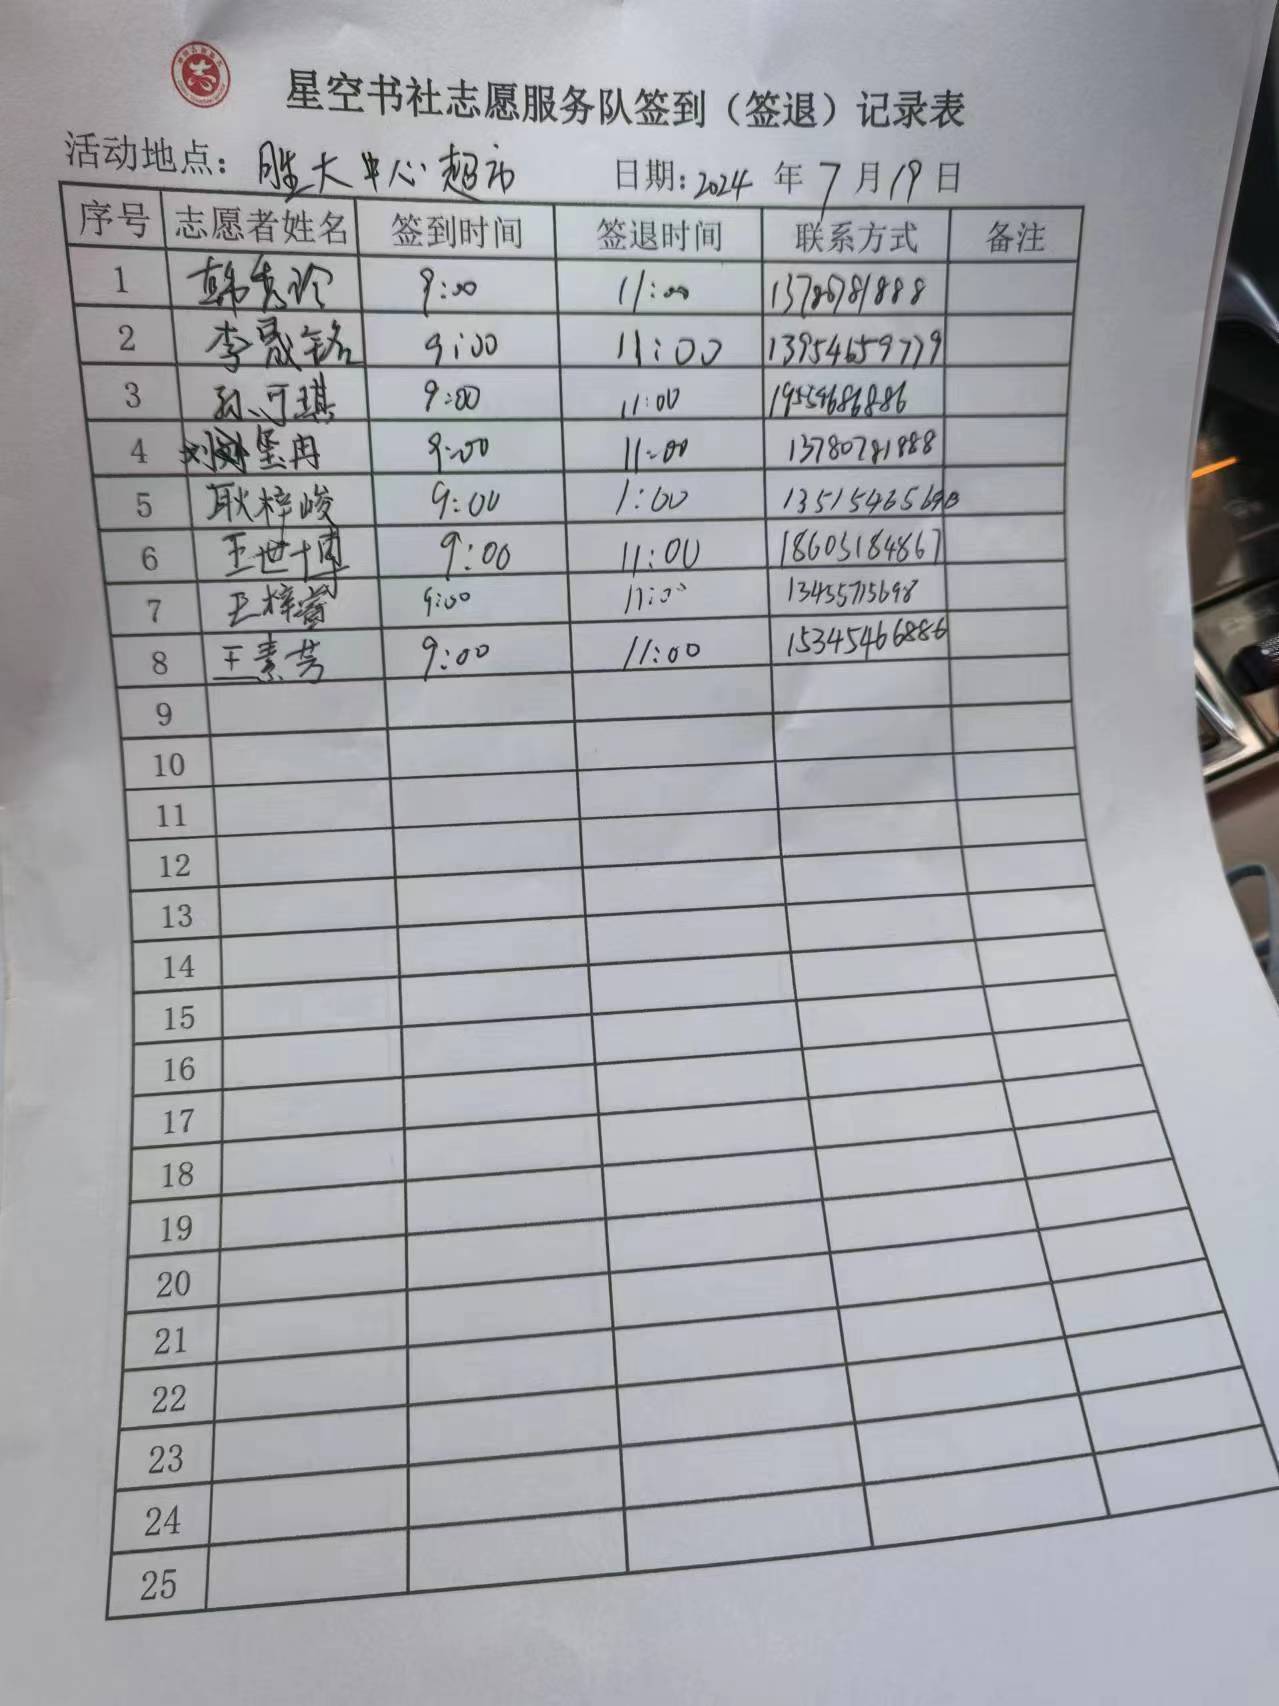 星空书社志愿服务队签到（签退）记录表
活动地点：胜大中心超市 日期：2024 年 7 月 19 日
序号 志愿者姓名 签到时间 签退时间 联系方式 备注
1 韩秀玲 9:00 11:00 13780781888
2 李晟铭 9:00 11:00 13954659779
3 孙可琪 9:00 11:00 19554686886
4 刘 昱冉 9:00 11:00 13780781888
5 耿梓峻 9:00 1:00
6 王世博 9:00 11:00 18605184867
7 王梓萱 9:00 11:00 13455715698
8 王素芳 9:00 11:00 15345466886
9
10
11
12
13
14
15
16
17
18
19
20
21
22
23
24
25